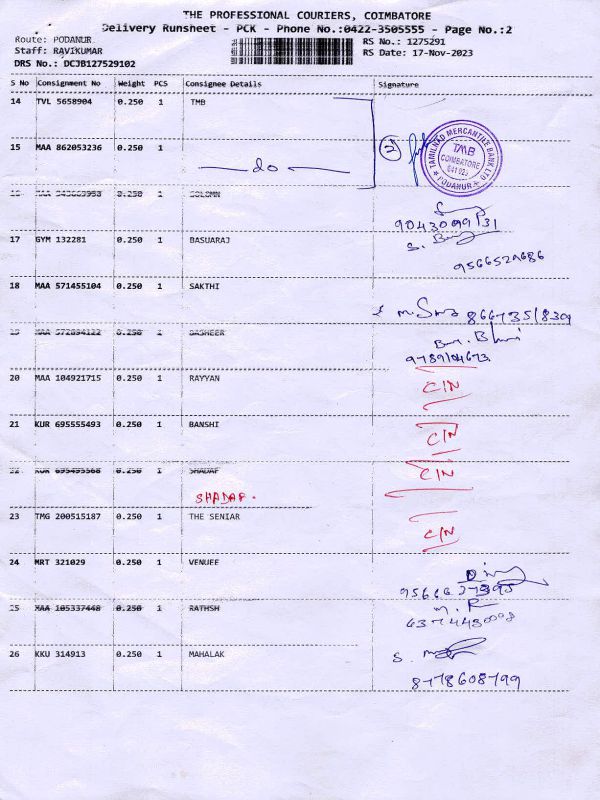 THE PROFESSIONAL COURIERS, COIMBATORE
Delivery Runsheet - PCK - Phone No.:0422-3505555 - Page No.:2
Route: PODANUR
RS No.: 1275291
Staff: RAVIKUMAR
RS Date: 17-Nov-2023
DRS No.: DCJB127529102
S No Consignment No Weight PCS Consignee Details Signature
14 TVL 5658904 0.250 1 TMB
15 MAA 862053236 0.250 1 do
2
TAMILNAD MERCANTILE BANK LTD
TMB
COIMBATORE
PODANUR
0.250 1 SOLOMN
17 GYM 132281 0.250 1 BASUARAJ
9566529686
18 MAA 571455104 0.250 1 SAKTHI
MAA 572894122 0.250 1 BASHEER
20 MAA 104921715 0.250 1 RAYYAN C/N
21 KUR 695555493 0.250 1 BANSHI C/N
22 KUR 0.250 1 SHADAF C/N
SHADAF.
23 TMG 200515187 0.250 1 THE SENIAR C/N
24 MRT 321029 0.250 1 VENUEE
25 MAA 105337448 0.250 1 RATHSH
26 KKU 314913 0.250 1 MAHALAK
8778608799